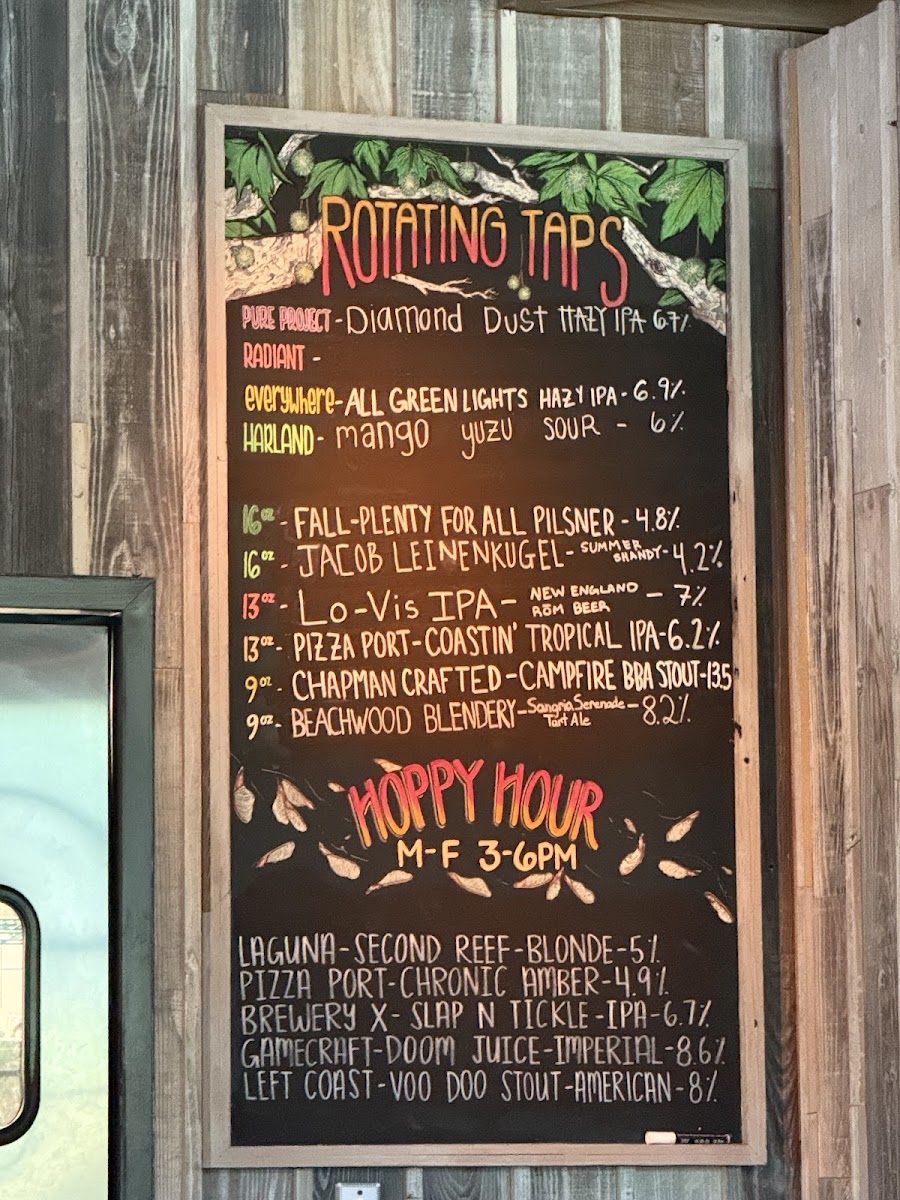 ROTATING TAPS
PURE PROJECT - Diamond Dust HAZY IPA 6.7%
RADIANT -
everywhere - ALL GREEN LIGHTS HAZY IPA - 6.9%
HARLAND - mango yuzu SOUR - 6%
16oz - FALL-PLENTY FOR ALL PILSNER - 4.8%
16oz - JACOB LEINENKUGEL - SUMMER SHANDY - 4.2%
13oz - Lo-Vis IPA - NEW ENGLAND RŌM BEER - 7%
13oz - PIZZA PORT - COASTIN' TROPICAL IPA - 6.2%
9oz - CHAPMAN CRAFTED - CAMPFIRE BBA STOUT - 13.5
9oz - BEACHWOOD BLENDERY - Sangria Serenade Tart Ale - 8.2%
HOPPY HOUR
M-F 3-6PM
LAGUNA - SECOND REEF - BLONDE - 5%
PIZZA PORT - CHRONIC AMBER - 4.9%
BREWERY X - SLAP N TICKLE - IPA - 6.7%
GAMECRAFT - DOOM JUICE - IMPERIAL - 8.6%
LEFT COAST - VOO DOO STOUT - AMERICAN - 8%